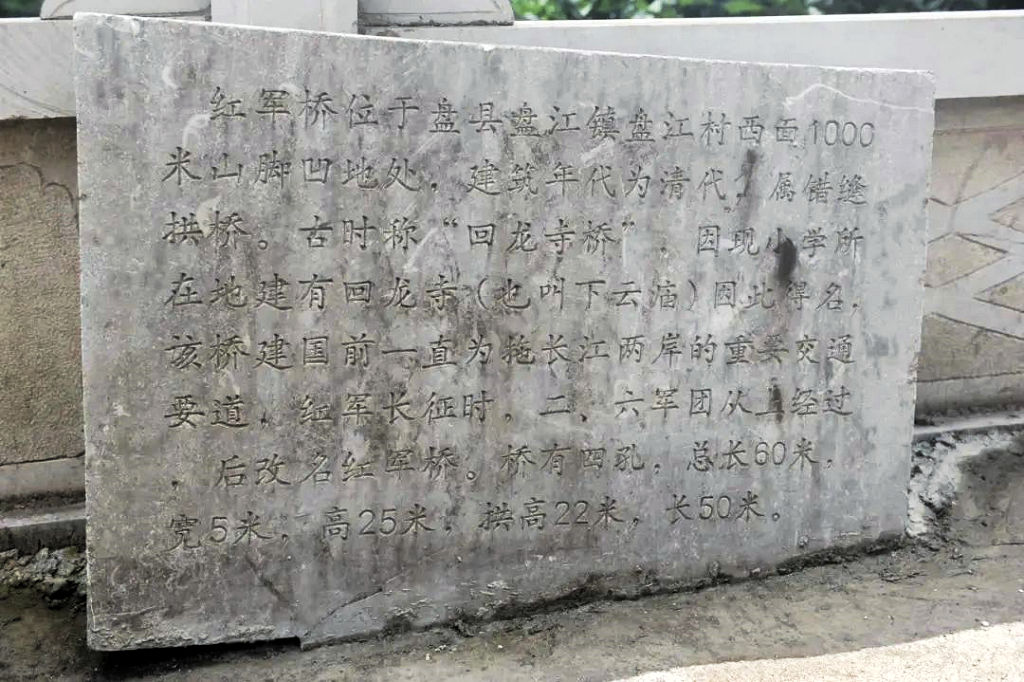 红军桥位于盘县盘江镇盘江村西面1000
米山脚凹地处，建筑年代为清代，属错缝
拱桥。古时称“回龙寺桥”，因现小学所
在地建有回龙寺（也叫下云庙）因此得名，
该桥建国前一直为拖长江两岸的重要交通
要道，红军长征时，二、六军团从上经过
，后改名红军桥。桥有四孔，总长60米，
宽5米，高25米，拱高22米，长50米。